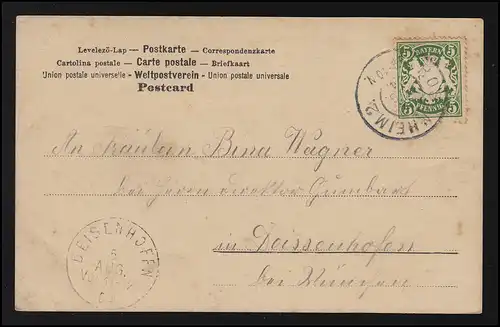 Levelező-Lap — Postkarte — Correspondenzkarte
Cartolina postale — Carte postale — Briefkaart
Union postale universelle — Weltpostverein — Union postale universale
Postcard
BAYERN
5 5
5 PFENNIG 5
HEIM 2
An Fräulein Bina Wagner
bei Herrn Direktor Gumbart
in Deisenhofen
bei München
DEISENHOFEN
6
AUG.